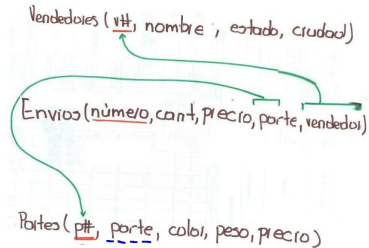 Vendedores (v#, nombre, estado, ciudad)
Envios (número, cant, precio, parte, vendedor)
Partes (p#, parte, color, peso, precio)